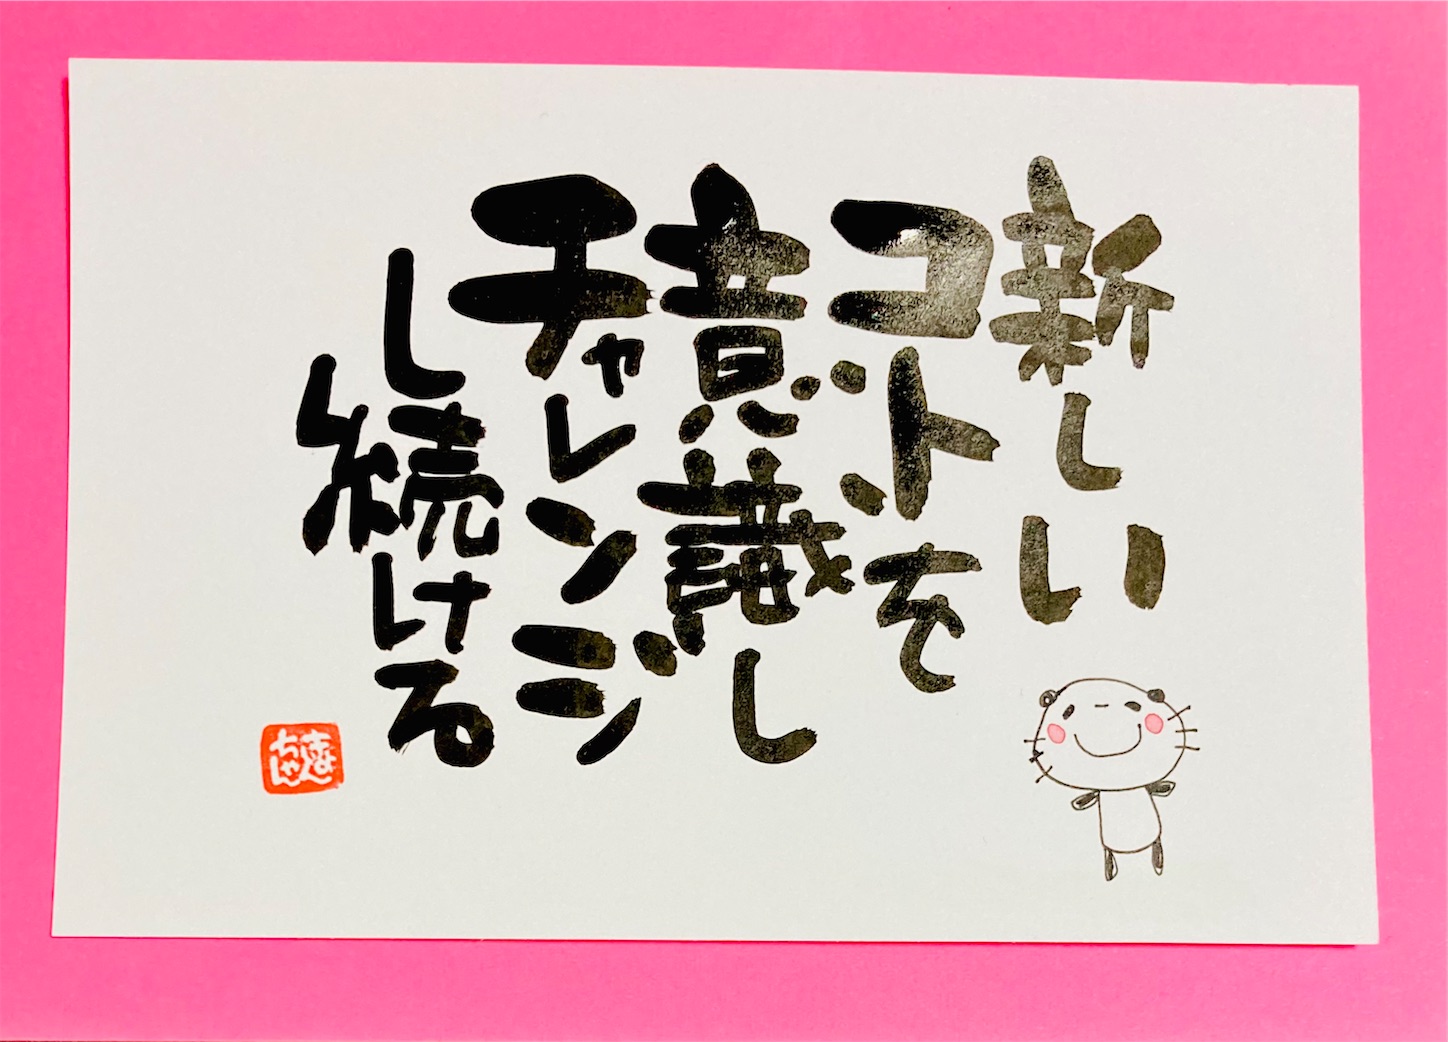 新しい
コトを
意識し
チャレンジ
し続ける
ちゃん